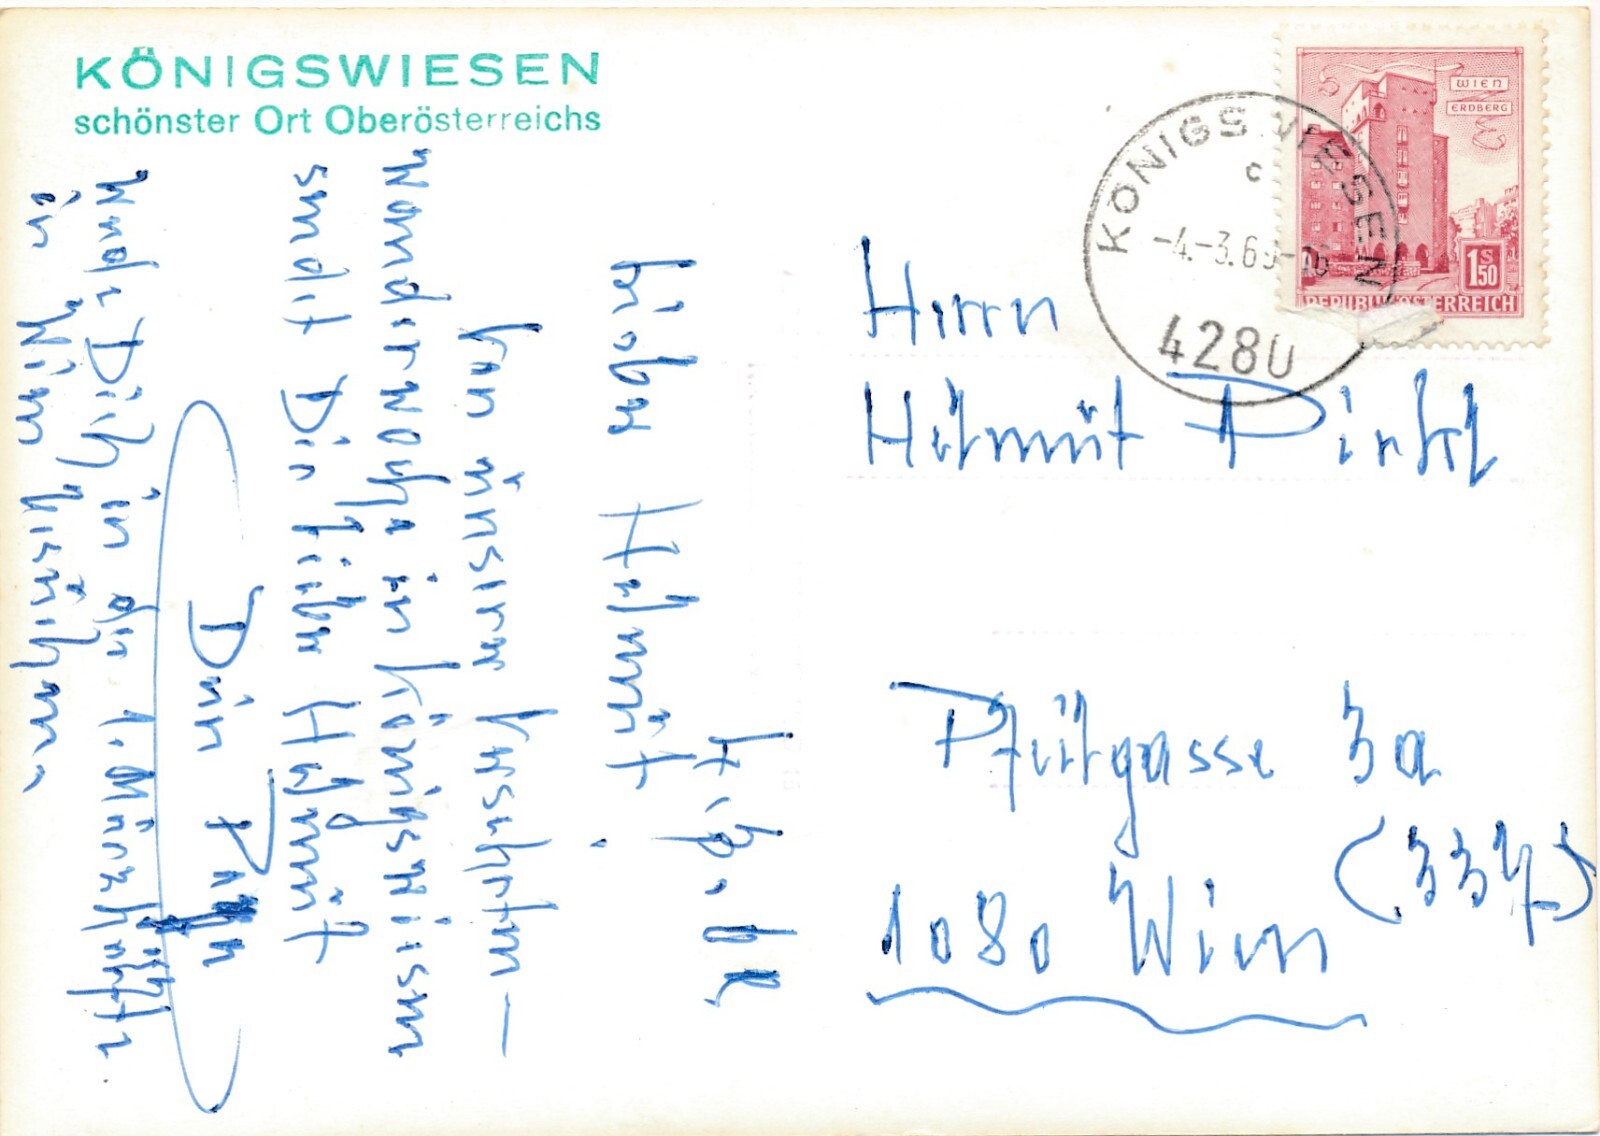 KÖNIGSWIESEN
schönster Ort Oberösterreichs
Lieber Helmut!
Von unserer
Wanderwoche in Königswiesen
sendet Dir lieber Helmut
Dein
Werde Dich in der 1. Märzhälfte
in Wien besuchen.
WIEN
ERDBERG
1 S 50
REPUBLIK ÖSTERREICH
KÖNIGSWIESEN
c
-4.-3.69-10
4280
Herrn
Helmut Pirkl
Pfeilgasse 3a
(337)
1080 Wien